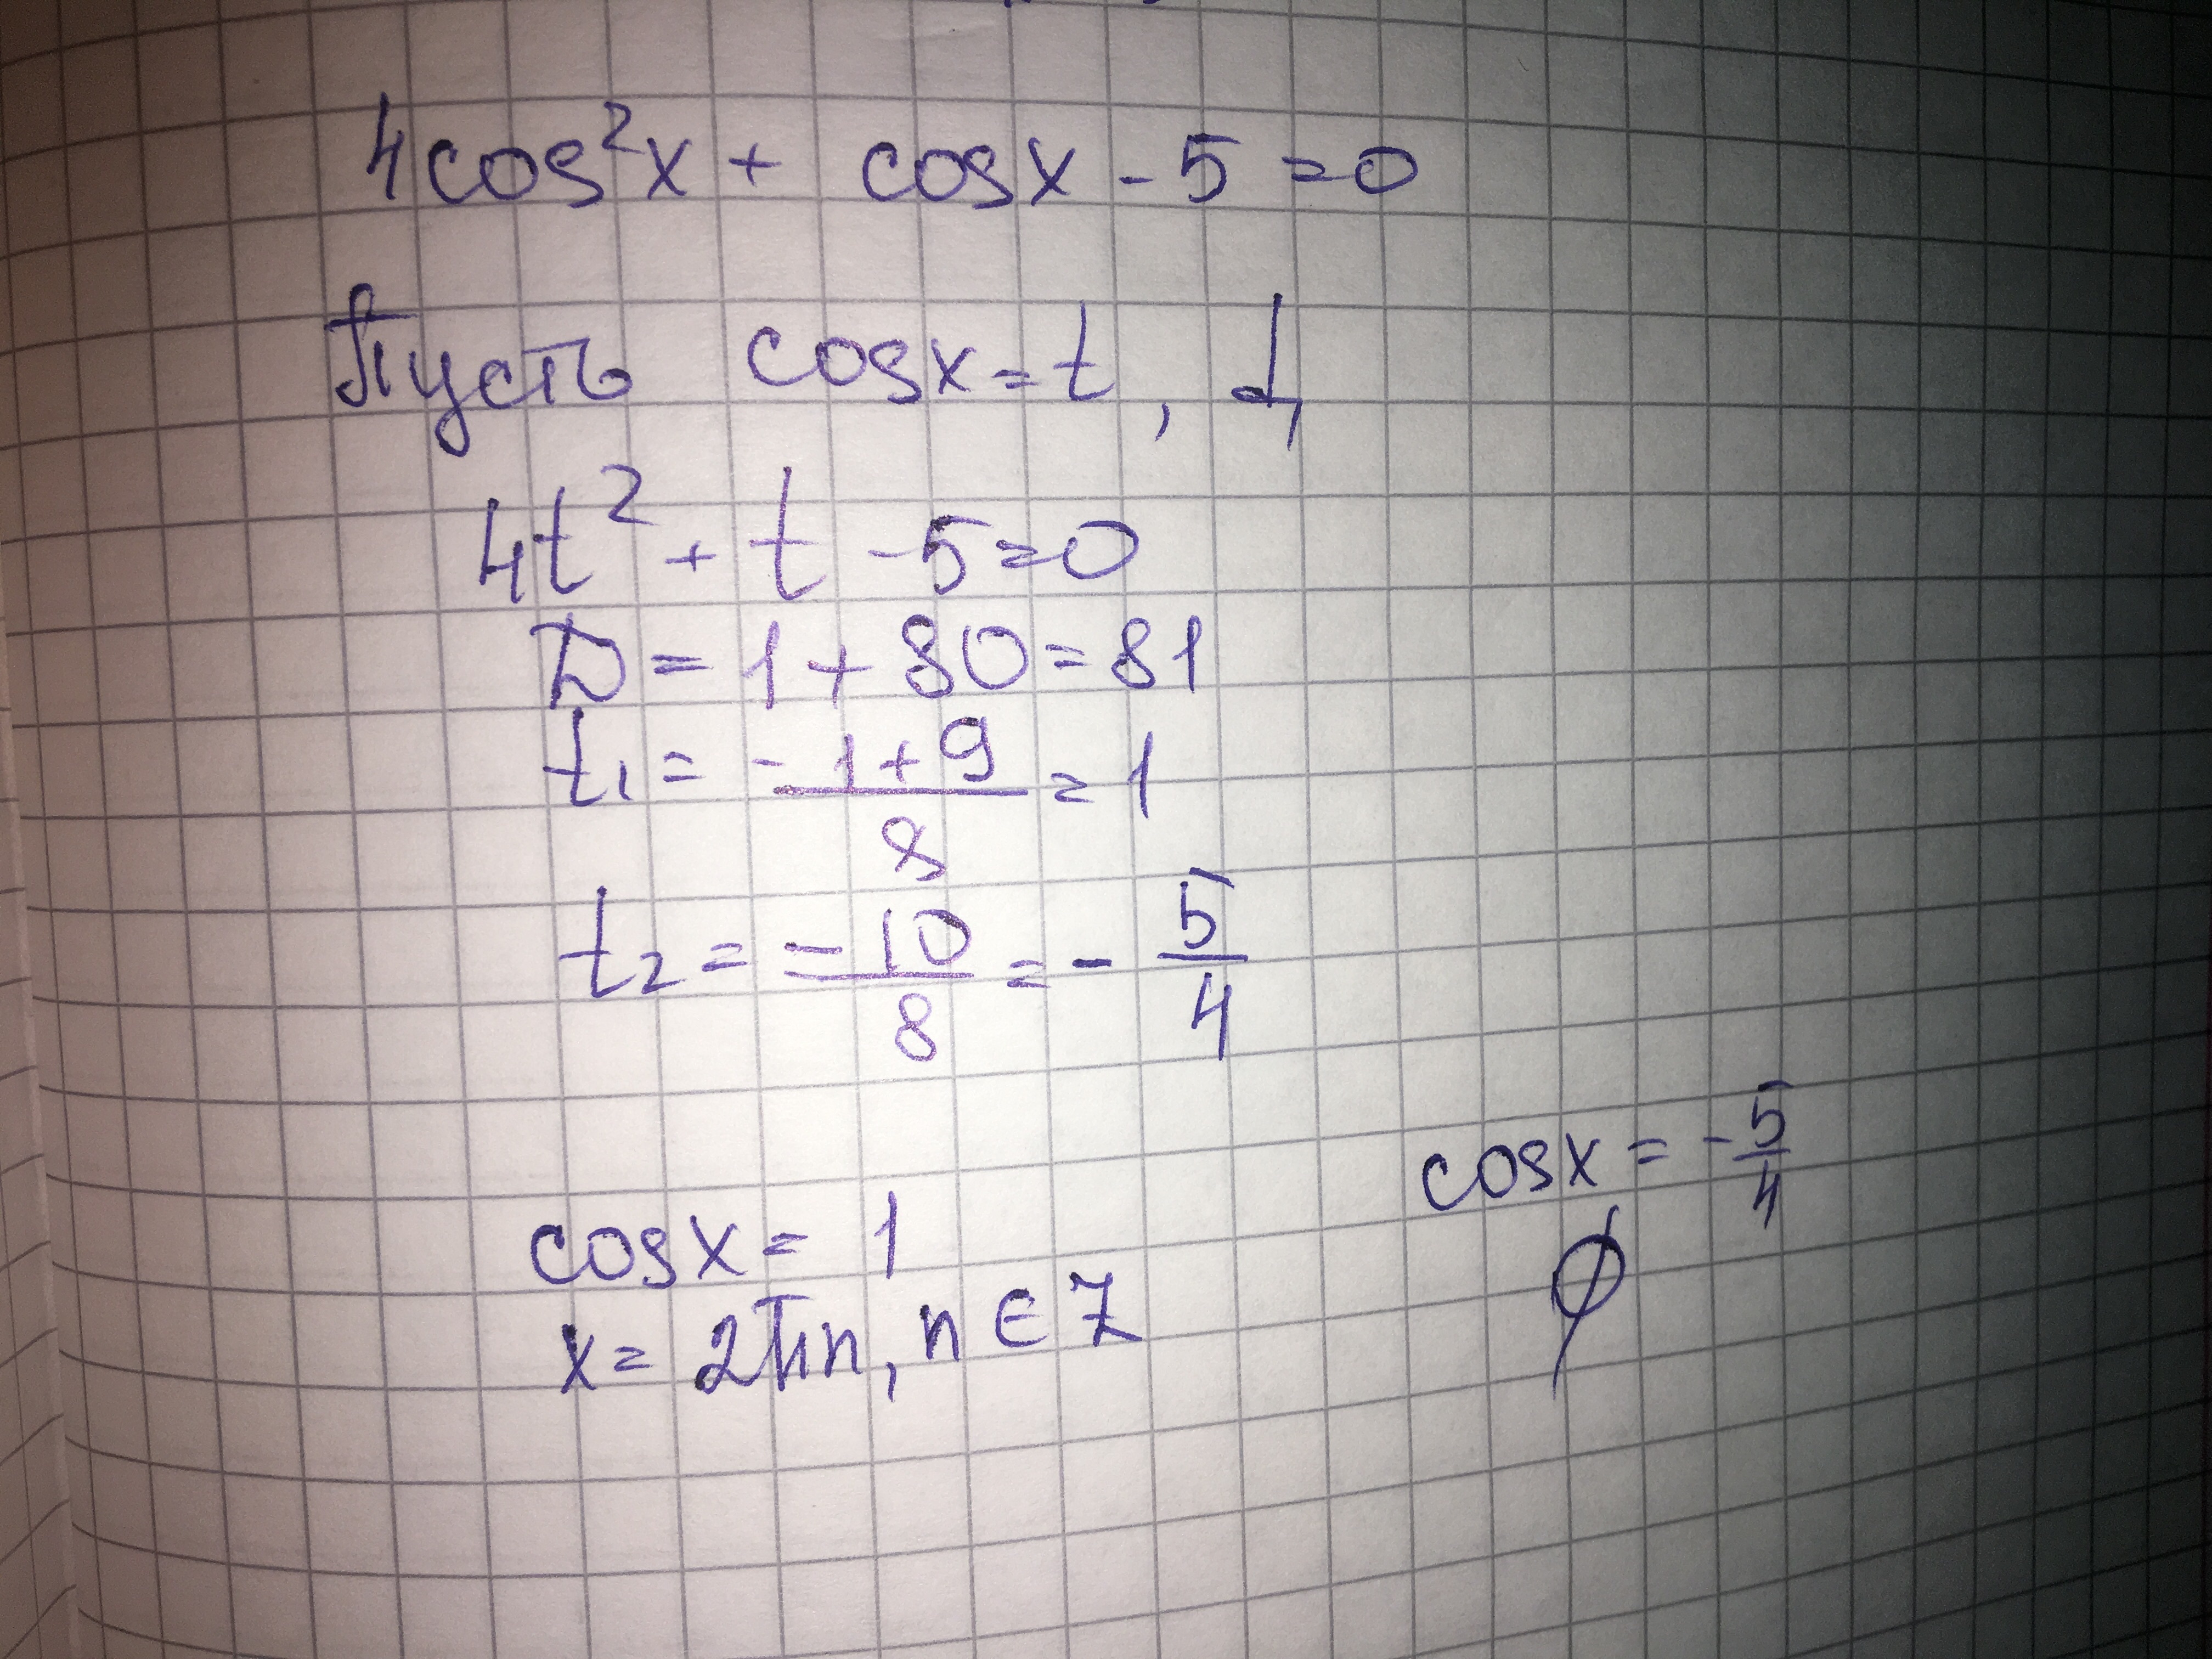 4cos²x + cosx - 5 = 0
Пусть cosx = t,
4t² + t - 5 = 0
D = 1 + 80 = 81
t₁ = (-1+9)/8 = 1
t₂ = -10/8 = - 5/4
cosx = - 5/4
∅
cosx = 1
x = 2πn, n ∈ Z